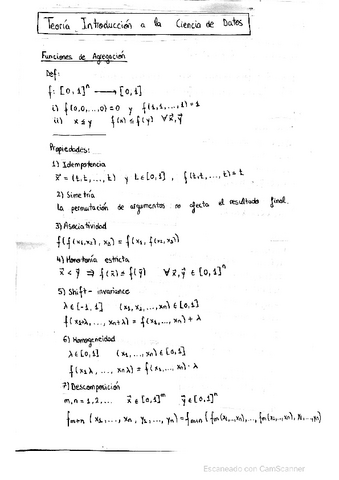 Teoría Introducción a la Ciencia de Datos
Funciones de Agregación
Def:
f: [0,1]ⁿ ⟶ [0,1]
i) f(0,0,...,0)=0 y f(1,1,...,1)=1
ii) x ≤ y f(x) ≤ f(y) ∀x⃗,y⃗
Propiedades:
1) Idempotencia
x⃗ = (t,t,...,t) y t∈[0,1] , f(t,t,...,t)=t
2) Simetría
la permutación de argumentos no afecta el resultado final.
3) Asociatividad
f(f(x₁,x₂), x₃) = f(x₁, f(x₂,x₃))
4) Monotonía estricta
x⃗ < y⃗ ⇒ f(x⃗) < f(y⃗) ∀x⃗,y⃗ ∈ [0,1]ⁿ
5) Shift - invariance
λ∈[-1,1] (x₁,x₂,...,xn) ∈ [0,1]
f(x₁+λ,...,xn+λ) = f(x₁,...,xn) + λ
6) Homogeneidad
λ∈[0,1] (x₁,...,xn) ∈ [0,1]
f(x₁λ,...,xnλ) = f(x₁,...,xn)·λ
7) Descomposición
m,n = 1,2,... x⃗∈[0,1]ᵐ y⃗∈[0,1]ⁿ
Escaneado con CamScanner